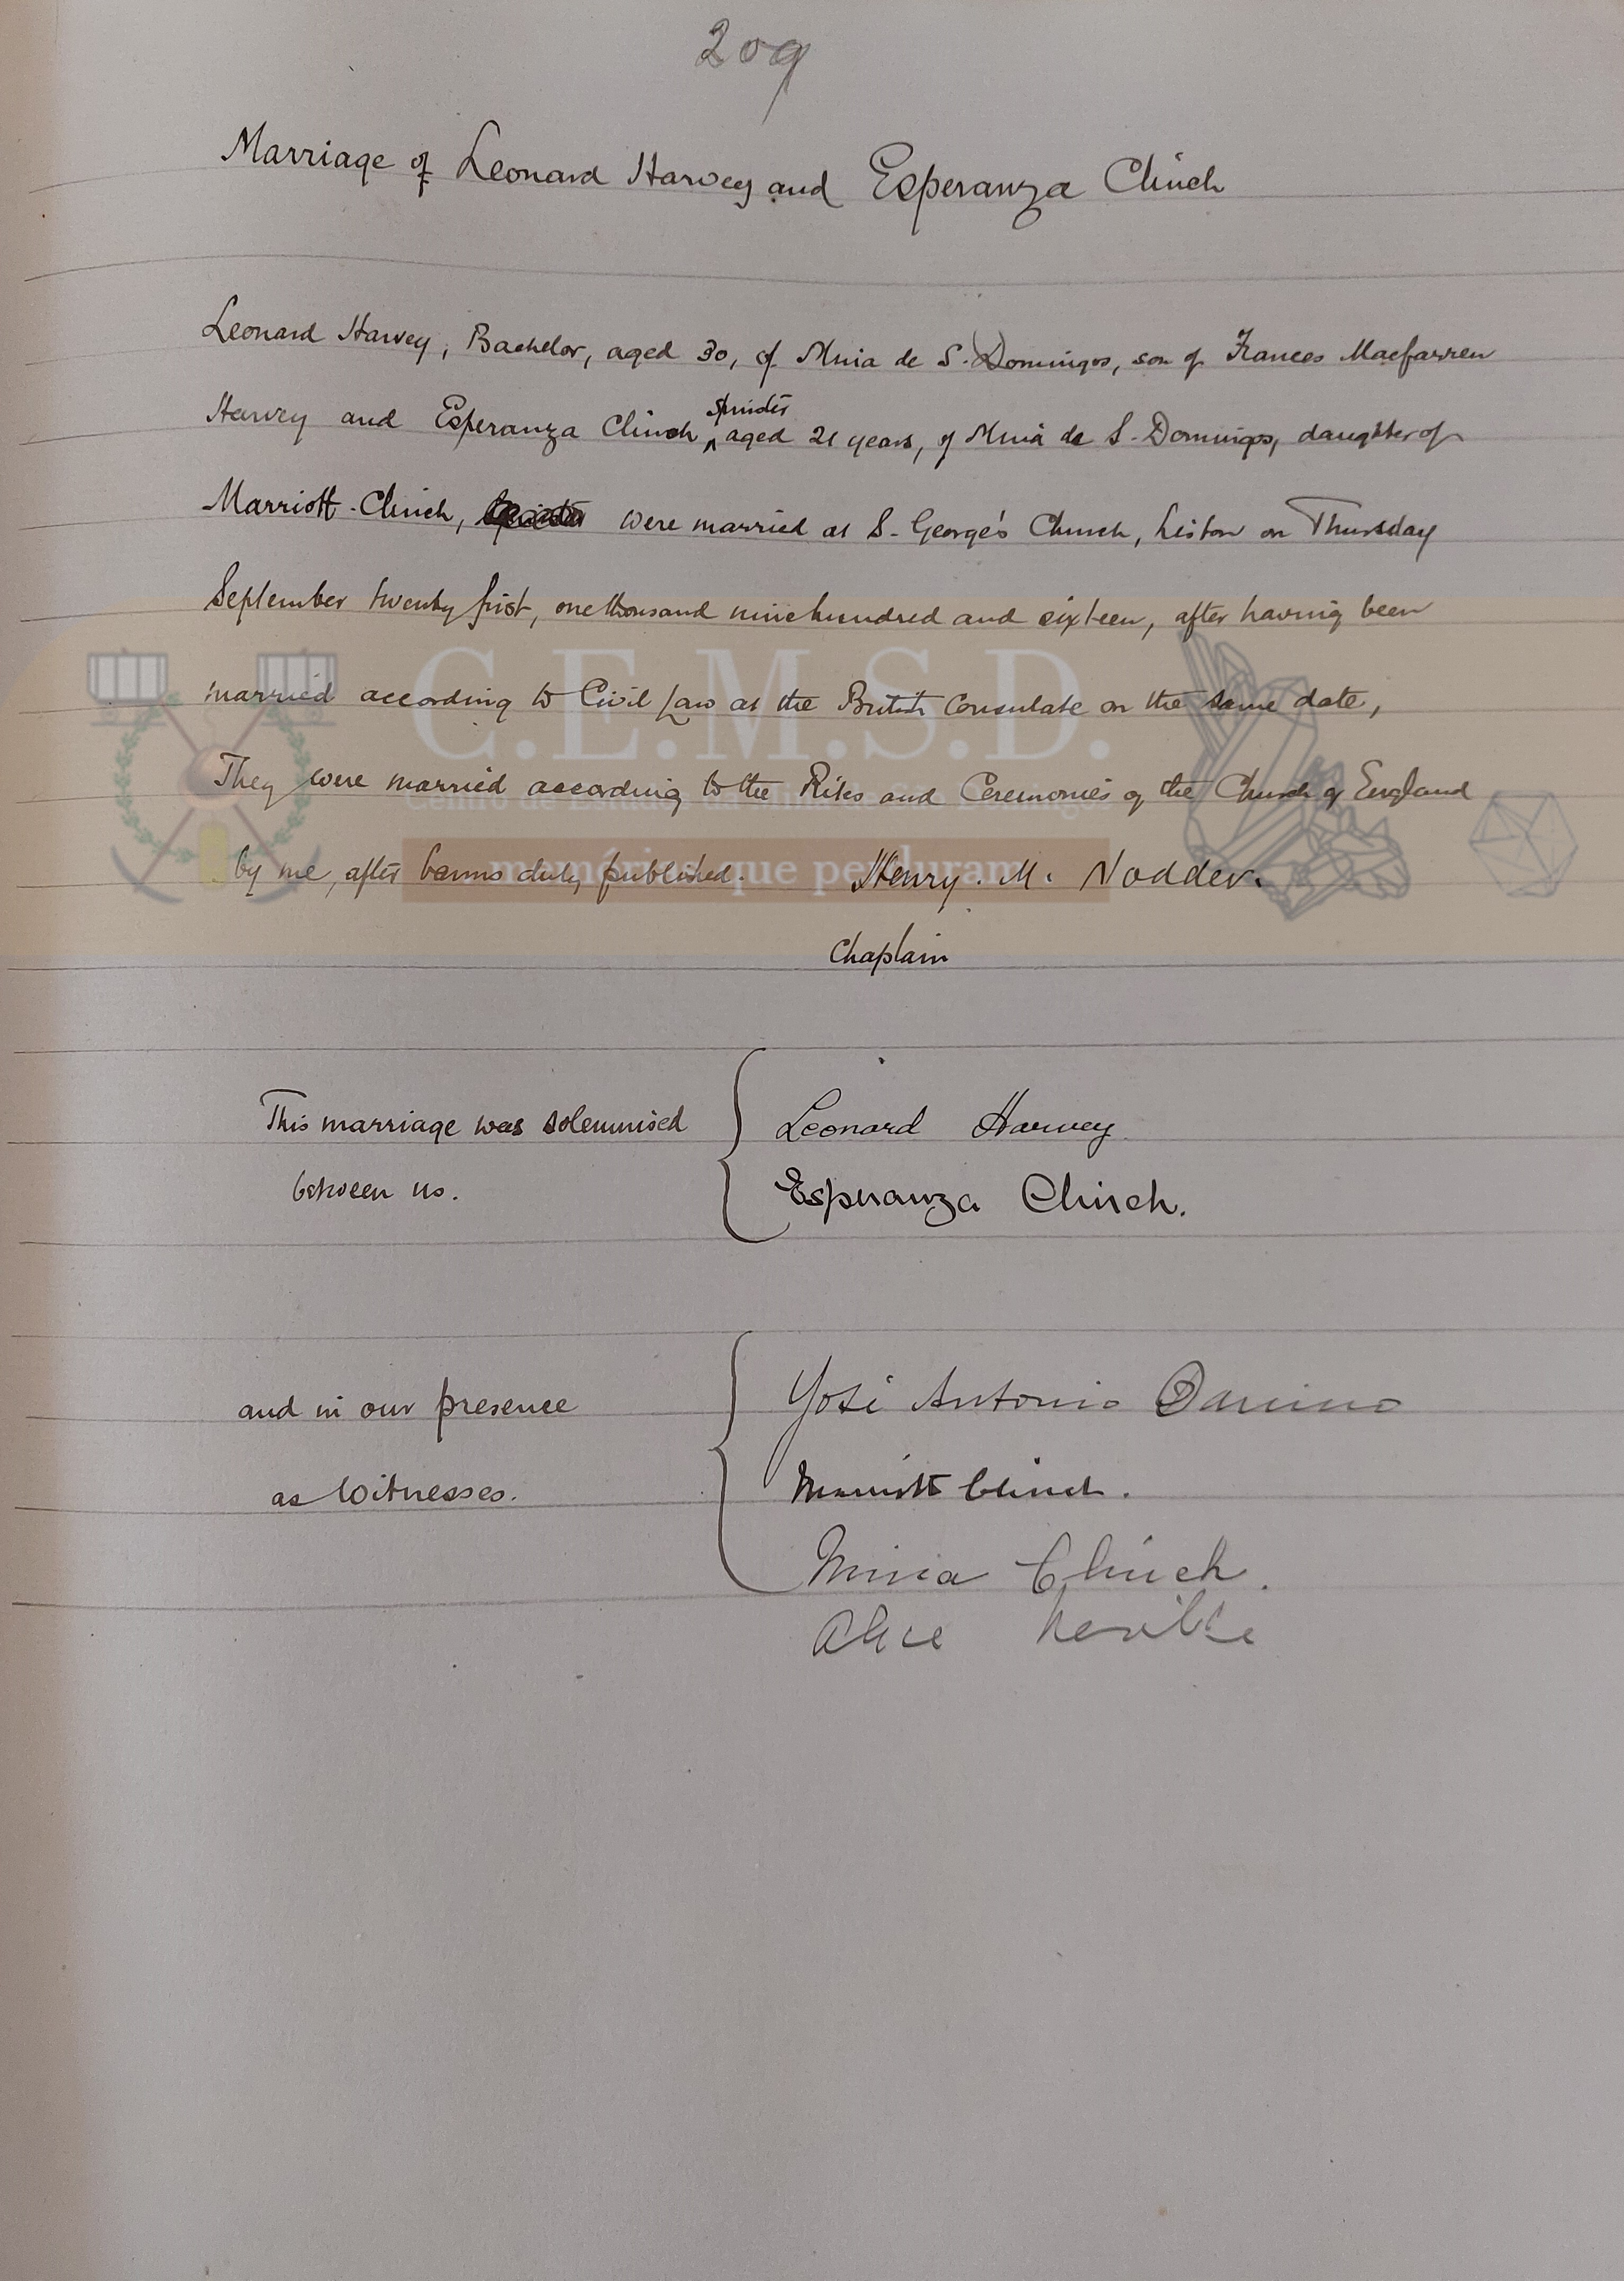 209
Marriage of Leonard Harvey and Esperanza Clinch
Leonard Harvey, Bachelor, aged 30, of Mina de S. Domingos, son of Frances Macfarren
spinster
Harvey and Esperanza Clinch ^ aged 21 years, of Mina de S. Domingos, daughter of
Marriott Clinch, were married at S. George's Church, Lisbon on Thursday
September twenty first, one thousand nine hundred and sixteen, after having been
C.E.M.S.D.
married according to Civil Law at the British Consulate on the same date,
They were married according to the Rites and Ceremonies of the Church of England
memórias que perduram
by me, after banns duly published. Henry. M. Nodder.
Chaplain
This marriage was solemnised
between us.
Leonard Harvey
Esperanza Clinch.
and in our presence
as witnesses.
José Antonio
Marriott Clinch.
Clinch.
Alice Neville